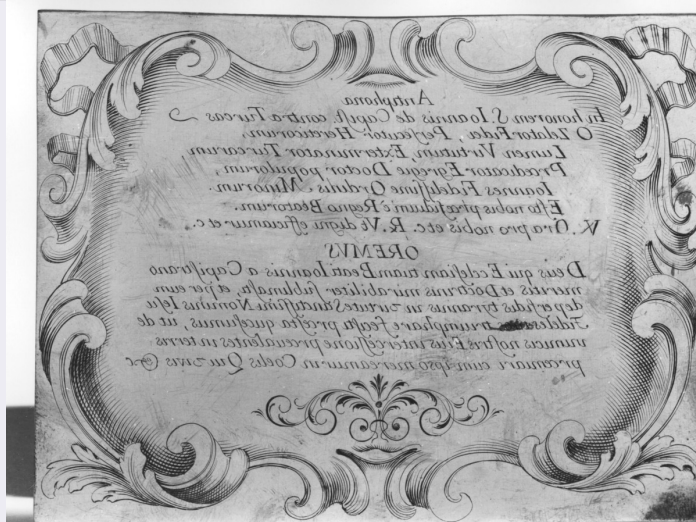 Antiphona
In honorem S. Ioannis de Capist. contra Turcas
O Zelator Fidei, Persecutor Hereticorum,
Lumen Virtutum, Exterminator Turcarum
Predicator Egregie Doctor populorum,
Ioannes Fidelissime Ordinis Minorum.
Esto nobis præsidium è Regno Beatorum.
V. Ora pro nobis etc. R. Vt digni efficiamur etc.
OREMVS
Deus qui Ecclesiam tuam Beati Ioannis a Capistrano
meritis et Doctrinis mirabiliter sublimasti, & per eum
de perfidis tyrannis in virtute Sanctissimi Nominis Iesu
Fideles triumphare fecisti presta quesumus, ut de
inimicis nostris Eius intercessione prevalentes in terris
premiari cum ipso mereamur in Coelis Qui vivis &c